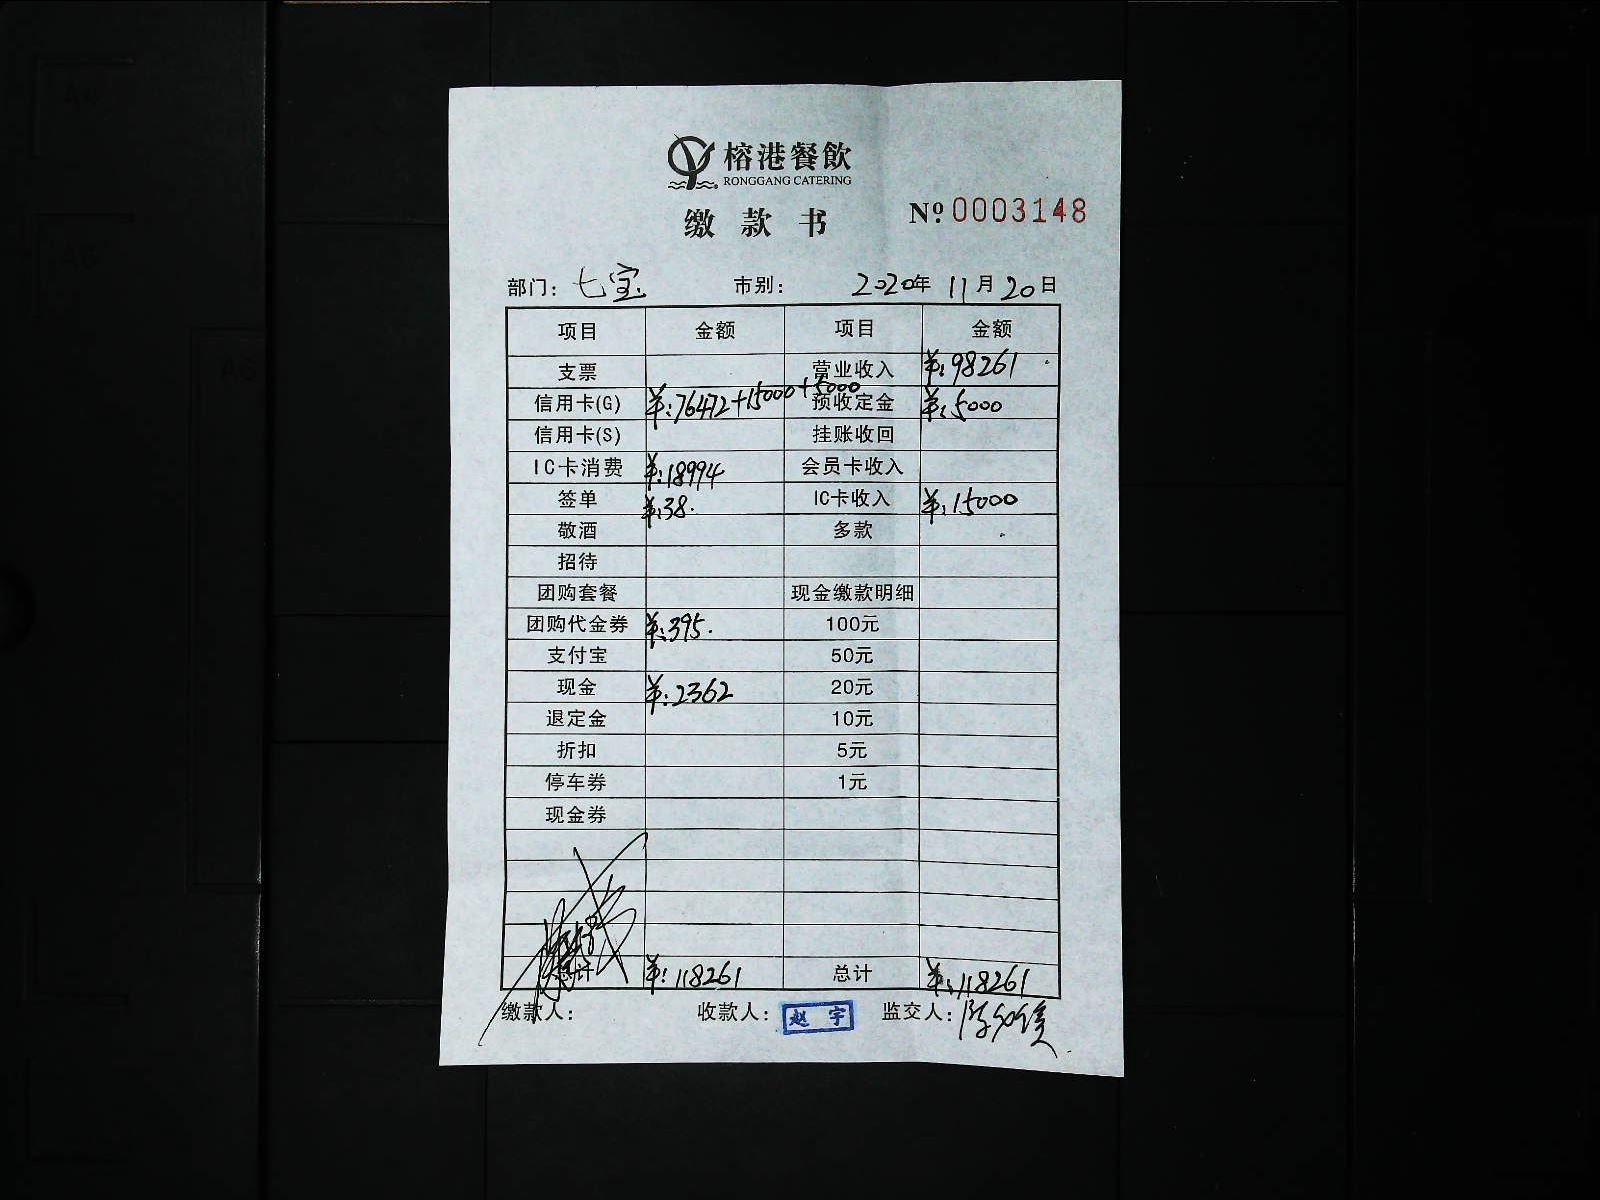 榕港餐飲
RONGGANG CATERING
缴款书 Nº.0003148
部门：七宝 市别： 2020年11月20日
项目 金额 项目 金额
支票 营业收入 ¥:98261
信用卡(G) ¥:76472+15000+5000 预收定金 ¥:5000
信用卡(S) 挂账收回
IC卡消费 ¥:18994 会员卡收入
签单 ¥:38. IC卡收入 ¥:15000
敬酒 多款
招待
团购套餐 现金缴款明细
团购代金券 ¥:395. 100元
支付宝 50元
现金 ¥:2362 20元
退定金 10元
折扣 5元
停车券 1元
现金券
总计 ¥:118261 总计 ¥:118261
缴款人： 收款人：赵宇 监交人：